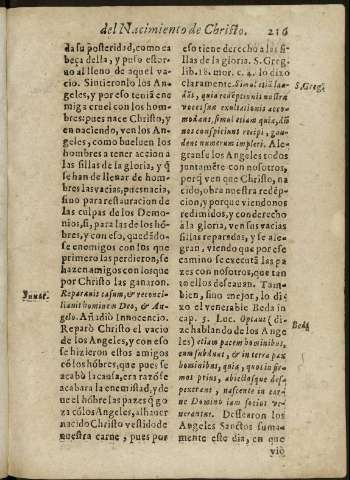 del Nacimiento de Christo. 216
da su posteridad, como ca
beça della, y puso estor-
uo al lleno de aquel va-
cio. Sintieronlo los An-
geles, y por eso tenia ene
miga cruel con los hom-
bres: pues nace Christo, y
en naciendo, ven los An-
geles, como bueluen los
hombres a tener accion a
las sillas de la gloria, y q̃
se han de llenar de hom-
bres las vacias, pues nacia,
sino para restauracion de
las culpas de los Demo-
nios, si, para las de los hõ-
bres, y con eso, quedãdo-
se enemigos con los que
primero las perdieron, se
hazen amigos con los que
por Christo las ganaron.
Reparauit casum, & reconci-
liauit hominem Deo, & An-
gelo. Añadiò Innocencio.
Reparò Christo el vacio
de los Angeles, y con eso
se hizieron estos amigos
cõ los hõbres, que pues se
acabò la causa, era razõ se
acabara la enemistad, y de
ue el hõbre las pazes q̃ go
za cõ los Angeles, al hauer
nacido Christo vestido de
nuestra carne, pues por
Innoc.
eso tiene derecho a las si-
llas de la gloria. S. Greg.
lib. 18. mor. c. 4. lo dixo
claramente. Simul etiã lau-
dãs, quia redẽptionis nostra
voces suæ exultationis acco-
modans, simul etiam quia, dũ
nos conspiciunt recipi, gau-
dent numerum impleri. Ale-
granse los Angeles todos
juntamẽte con nosotros,
porq̃ ven que Christo, na
cido, obra nuestra redẽp-
cion, y porque viendonos
redimidos, y con derecho
à la gloria, ven sus vacias
sillas reparadas, y se ale-
gran, viendo que por ese
camino se executã las pa
zes con nosotros, que tan
to ellos deseauan. Tam-
bien, sino mejor, lo di-
xo el venerable Beda in
cap. 5. Luc. Optant (di-
ze hablando de los Ange
les) etiam pacem hominibus,
cum subdunt, & in terra pax
hominibus, quia, quos in fir-
mos prius, abiectosque des-
pexerant, nascente in car-
ne Domino iam socios ve-
nerantur. Deseauan los
Angeles Sanctos suma-
mente este dia, en que
vio
S. Greg.
Beda